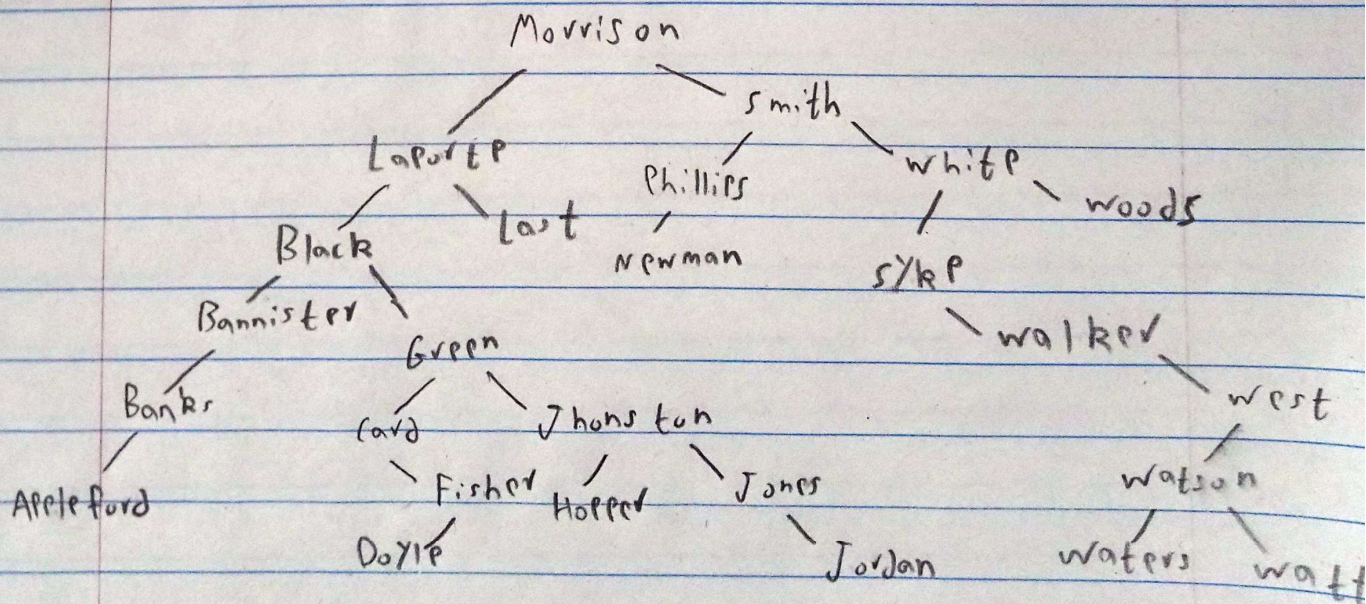 Morrison
Smith
Laporte
Phillips
White
Woods
Black
Last
Newman
Syke
Bannister
Green
Walker
Banks
Card
Jhonston
West
Appleford
Fisher
Hopper
Jones
Watson
Doyle
Jordan
Waters
Watt